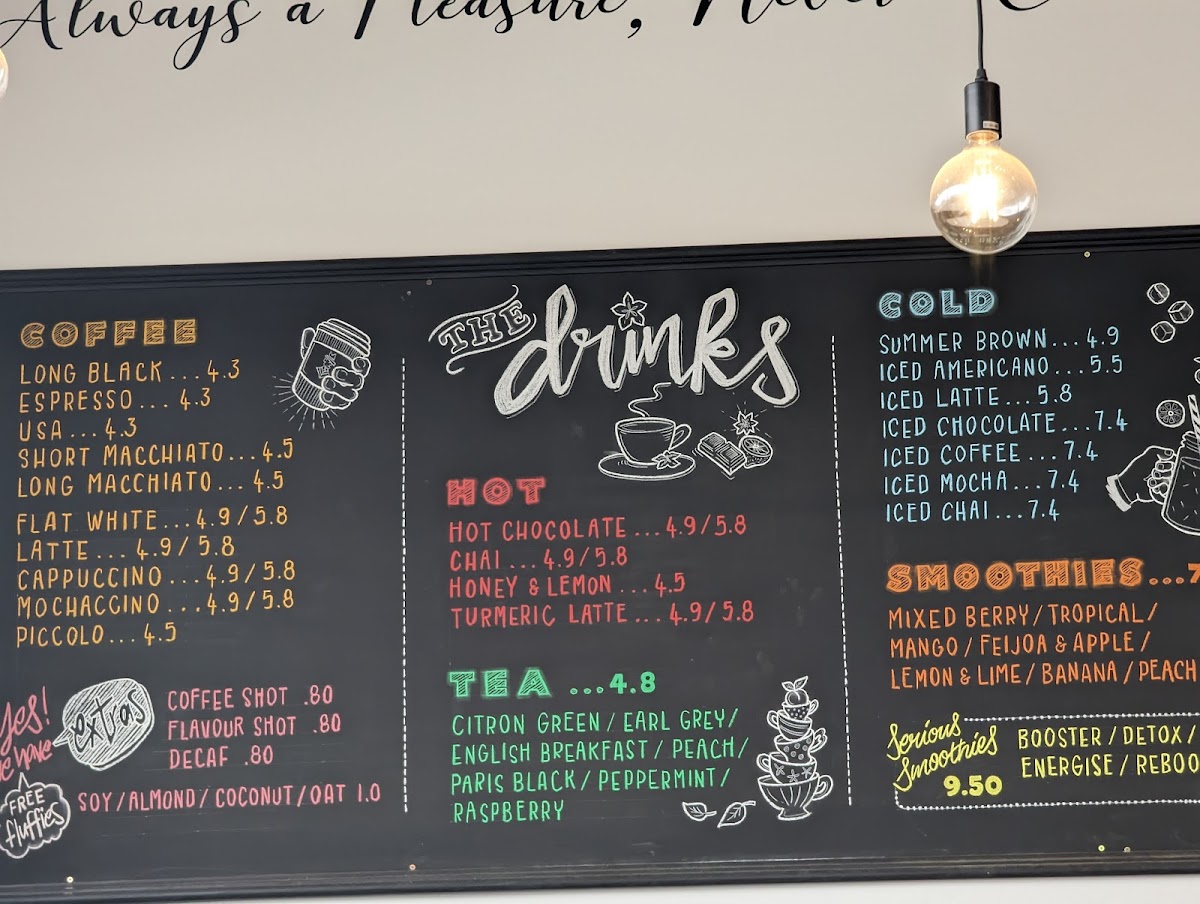 Always a Pleasure, Never
COFFEE
LONG BLACK...4.3
ESPRESSO...4.3
USA...4.3
SHORT MACCHIATO...4.5
LONG MACCHIATO...4.5
FLAT WHITE...4.9/5.8
LATTE...4.9/5.8
CAPPUCCINO...4.9/5.8
MOCHACCINO...4.9/5.8
PICCOLO...4.5
Yes!
we have
FREE
fluffies
extras
COFFEE SHOT .80
FLAVOUR SHOT .80
DECAF .80
SOY/ALMOND/COCONUT/OAT 1.0
THE
drinks
HOT
HOT CHOCOLATE...4.9/5.8
CHAI...4.9/5.8
HONEY & LEMON...4.5
TURMERIC LATTE...4.9/5.8
TEA...4.8
CITRON GREEN/EARL GREY/
ENGLISH BREAKFAST/PEACH/
PARIS BLACK/PEPPERMINT/
RASPBERRY
COLD
SUMMER BROWN...4.9
ICED AMERICANO...5.5
ICED LATTE...5.8
ICED CHOCOLATE...7.4
ICED COFFEE...7.4
ICED MOCHA...7.4
ICED CHAI...7.4
SMOOTHIES...7
MIXED BERRY/TROPICAL/
MANGO/FEIJOA & APPLE/
LEMON & LIME/BANANA/PEACH
Serious
Smoothies
9.50
BOOSTER/DETOX/
ENERGISE/REBOO